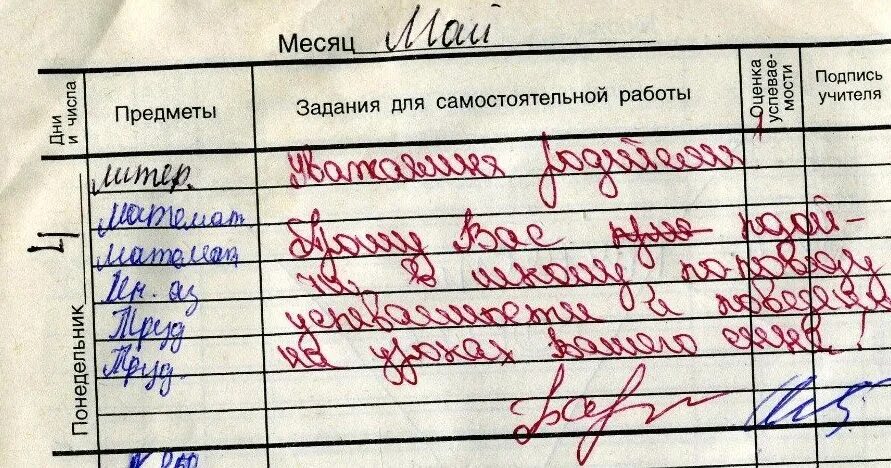 Месяц Май
Дни и числа
Предметы
Задания для самостоятельной работы
Оценка успеваемости
Подпись учителя
Понедельник
4
литер.
Уважаемые родители!
Математ.
Прошу Вас подой-
Математ
ти в школу по поводу
Ин. яз
успеваемости и поведения
Труд
на уроках вашего сына!
Труд.